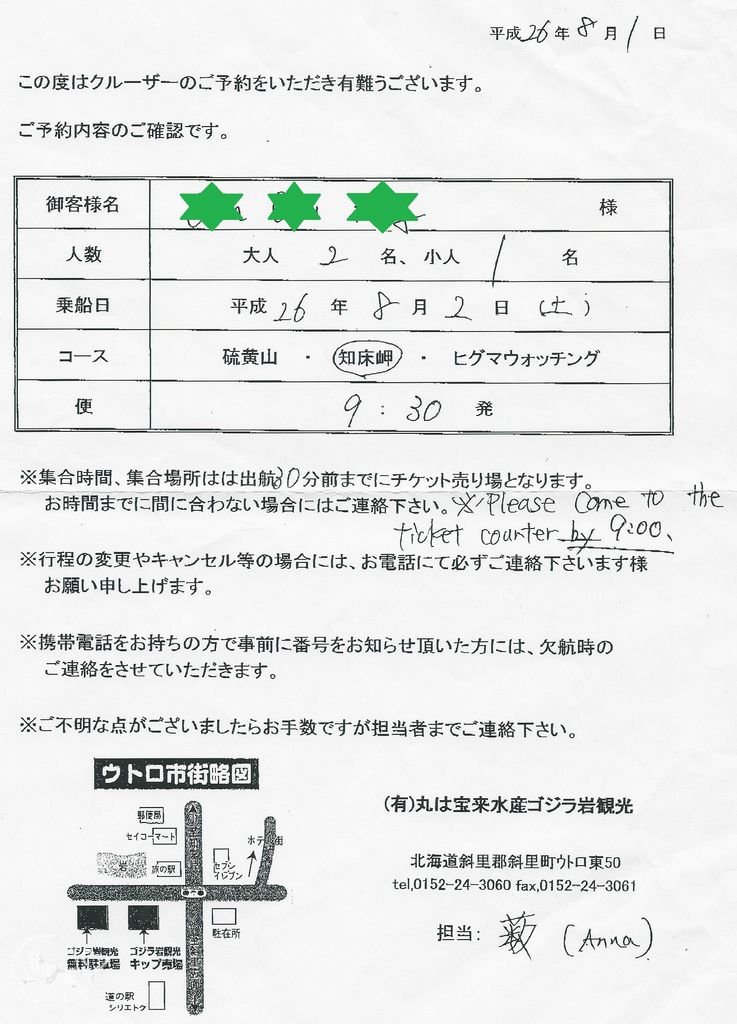 平成26年8月1日
この度はクルーザーのご予約をいただき有難うございます。
ご予約内容のご確認です。
御客様名 様
人数 大人 2 名、小人 1 名
乗船日 平成 26 年 8 月 2 日 (土)
コース 硫黄山 ・ 知床岬 ・ ヒグマウォッチング
便 9 : 30 発
※集合時間、集合場所はは出航30分前までにチケット売り場となります。
お時間までに間に合わない場合にはご連絡下さい。※Please come to the
ticket counter by 9:00.
※行程の変更やキャンセル等の場合には、お電話にて必ずご連絡下さいます様
お願い申し上げます。
※携帯電話をお持ちの方で事前に番号をお知らせ頂いた方には、欠航時の
ご連絡をさせていただきます。
※ご不明な点がございましたらお手数ですが担当者までご連絡下さい。
ウトロ市街略図
郵便局
セイコーマート
ホテル街
岩
道の駅
セブン
イレブン
駐在所
ゴジラ岩観光
無料駐車場
ゴジラ岩観光
キップ売場
道の駅
シリエトク
(有)丸は宝来水産ゴジラ岩観光
北海道斜里郡斜里町ウトロ東50
tel,0152-24-3060 fax,0152-24-3061
担当: 薮 (Anna)